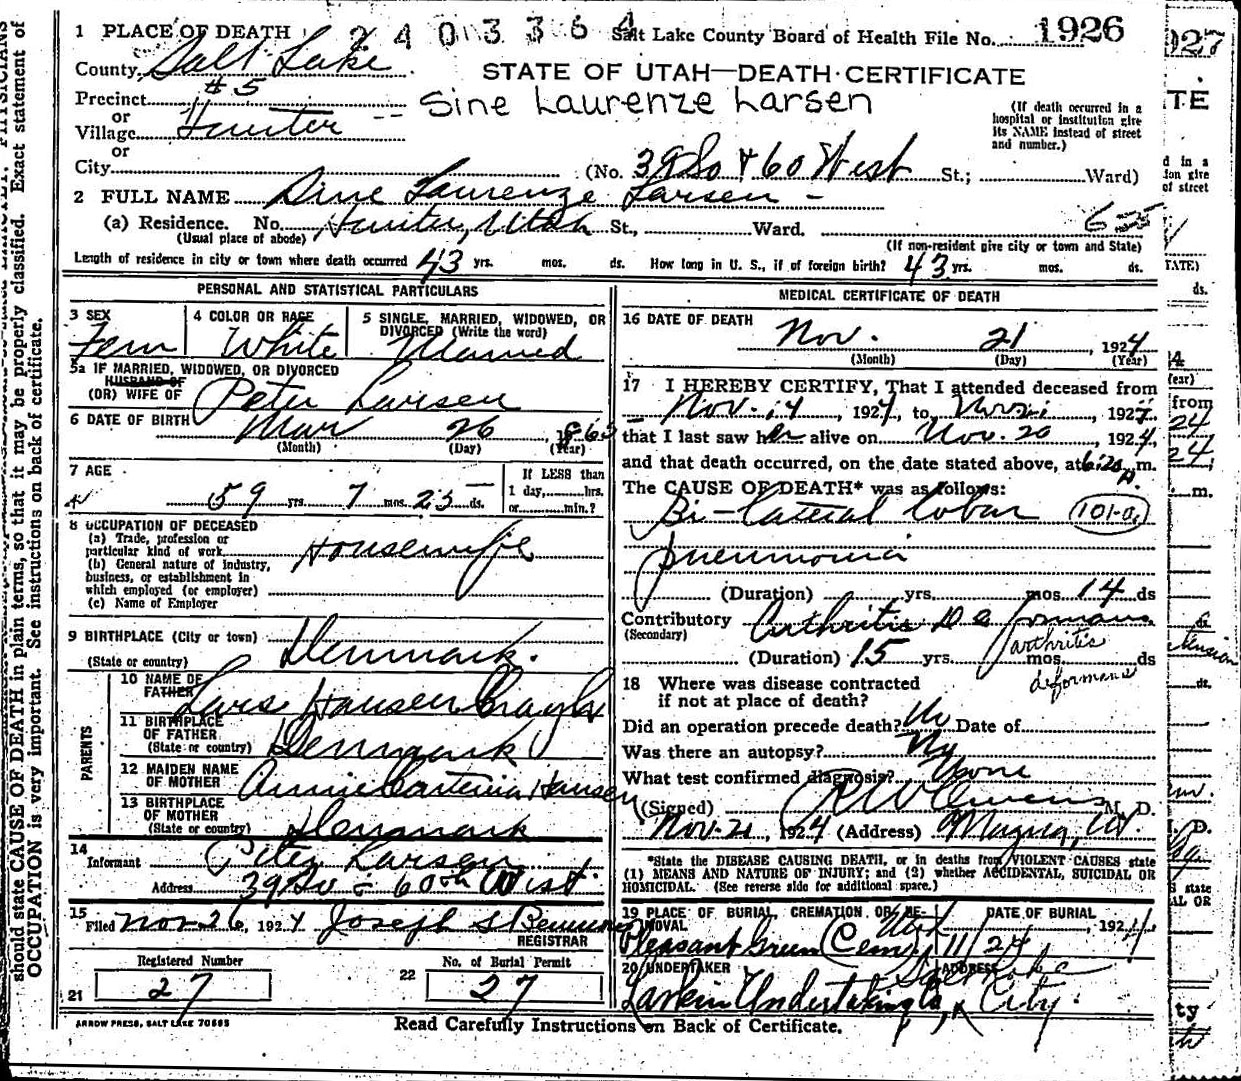 1 PLACE OF DEATH 2403364 Salt Lake County Board of Health File No. 1926
County Salt Lake
STATE OF UTAH—DEATH CERTIFICATE
Precinct #5
Sine Laurenze Larsen
(If death occurred in a hospital or institution give its NAME instead of street and number.)
or
Village Hunter --
or
City (No. 39 So & 60 West St.; Ward)
2 FULL NAME Sine Laurenze Larsen -
(a) Residence. No. Hunter, Utah St., Ward.
(Usual place of abode) (If non-resident give city or town and State)
Length of residence in city or town where death occurred 43 yrs. mos. ds. How long in U. S., if of foreign birth? 43 yrs. mos. ds.
PERSONAL AND STATISTICAL PARTICULARS
3 SEX 4 COLOR OR RACE 5 SINGLE, MARRIED, WIDOWED, OR DIVORCED (Write the word)
Fem White Married
5a IF MARRIED, WIDOWED, OR DIVORCED
HUSBAND OF
(OR) WIFE OF Peter Larsen
6 DATE OF BIRTH Mar 26, 1865
(Month) (Day) (Year)
7 AGE If LESS than
59 yrs. 7 mos. 25 ds. 1 day, hrs.
or min.?
8 OCCUPATION OF DECEASED
(a) Trade, profession or
particular kind of work Housewife
(b) General nature of industry,
business, or establishment in
which employed (or employer)
(c) Name of Employer
9 BIRTHPLACE (City or town)
(State or country) Denmark.
PARENTS
10 NAME OF FATHER Lars Hansen
11 BIRTHPLACE OF FATHER (State or country) Denmark
12 MAIDEN NAME OF MOTHER Annie Hansen
13 BIRTHPLACE OF MOTHER (State or country) Denmark
14
Informant Peter Larsen
Address 39 So & 60th West.
15
Filed Nov 26, 1924 Joseph S
REGISTRAR
Registered Number No. of Burial Permit
21 27 22 27
MEDICAL CERTIFICATE OF DEATH
16 DATE OF DEATH
Nov. 21, 1924
(Month) (Day) (Year)
17 I HEREBY CERTIFY, That I attended deceased from
Nov. 14, 1924, to Nov 21, 1924
that I last saw her alive on Nov. 20, 1924,
and that death occurred, on the date stated above, at 6:20 A. m.
The CAUSE OF DEATH* was as follows:
Bi-lateral lobar 101-a
pneumonia
(Duration) yrs. mos 14 ds
Contributory Arthritis Deformans
(Secondary)
(Duration) 15 yrs. mos. ds
arthritis
deformans
18 Where was disease contracted
if not at place of death?
Did an operation precede death? No Date of
Was there an autopsy? No
What test confirmed diagnosis? None
(Signed) R W Owens M. D.
Nov. 21, 1924 (Address) Magna, Ut.
*State the DISEASE CAUSING DEATH, or in deaths from VIOLENT CAUSES state
(1) MEANS AND NATURE OF INJURY; and (2) whether ACCIDENTAL, SUICIDAL OR
HOMICIDAL. (See reverse side for additional space.)
19 PLACE OF BURIAL, CREMATION OR REMOVAL DATE OF BURIAL
Pleasant Green Cem, Utah 11/24, 1924
20 UNDERTAKER ADDRESS
Larkin Undertaking Co, Salt Lake City.
ARROW PRESS, SALT LAKE 70685
Read Carefully Instructions on Back of Certificate.
should state CAUSE OF DEATH in plain terms, so that it may be properly classified. Exact statement of
OCCUPATION is very important. See instructions on back of certificate.